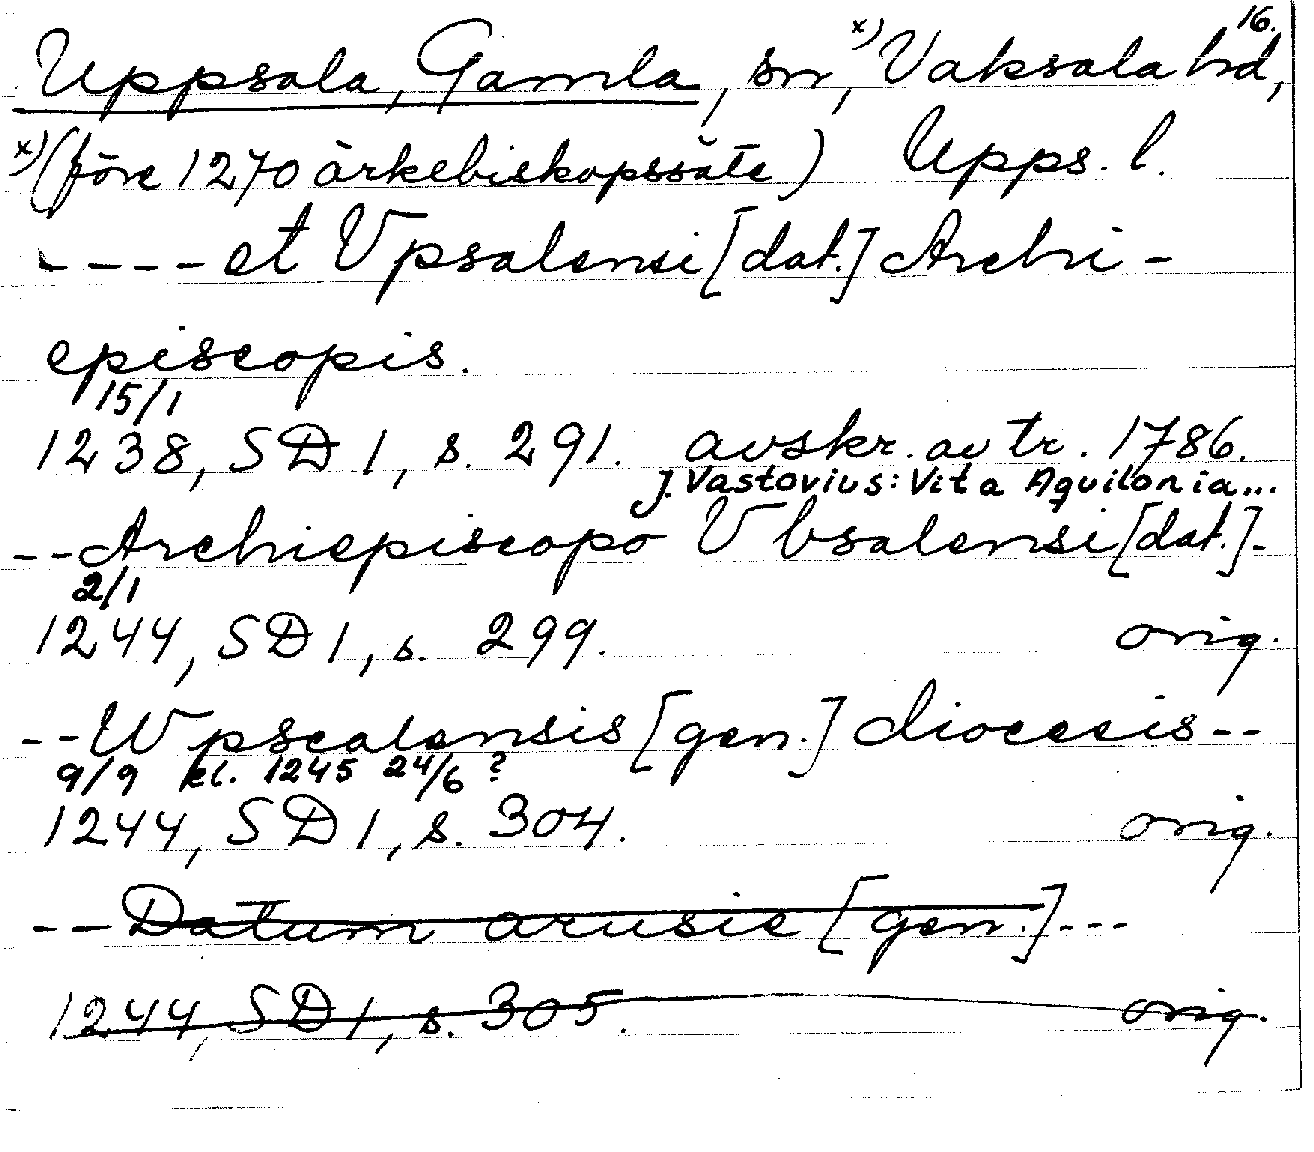 16.
Uppsala, Gamla, sn, x) Vaksala hd,
x) (före 1270 ärkebiskopssäte) Upps. l.
---- et Vpsalensi [dat.] Archi-
episcopis.
15/1
1238, SD 1, s. 291. avskr. av tr. 1786.
J. Vastovius: Vita Aquilonia...
-- Archiepiscopo Vbsalensi [dat.]-
2/1
1244, SD 1, s. 299. orig.
-- Wpsealensis [gen.] diocesis--
9/9 kl. 1245 24/6 ?
1244, SD 1, s. 304. orig.
-- Datum arusie [gen.]---
1244, SD 1, s. 305. orig.